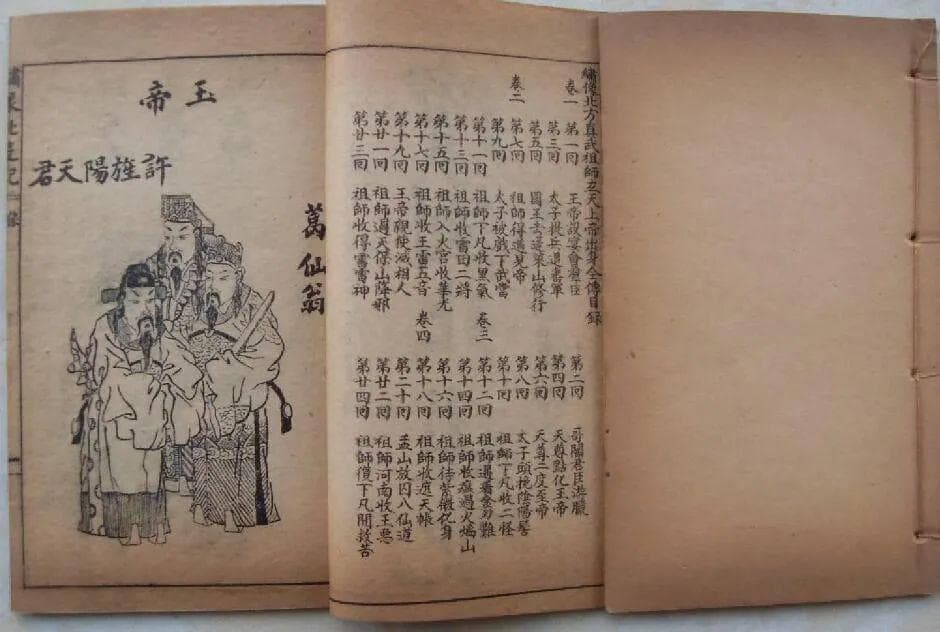 繡像北方真武祖師玄天上帝出身全傳目錄
卷一
第一回 玉帝設宴會群臣 第二回 哥闍君臣遊獵
第三回 太子提兵退 軍 第四回 天尊點化玉帝
第五回 國王去蓬萊山修行 第六回 天尊二度玉帝
卷二
第七回 祖師得道見帝 第八回 太子頭挽陰陽髻
第九回 太子被戲下武當 第十回 祖師下凡收二怪
第十一回 祖師下凡收黑氣 卷三 第十二回 祖師遇 難
第十三回 祖師收雷田二將 第十四回 祖師收瘟過火焰山
第十五回 祖師入火宮收華光 第十六回 祖師待紫微化身
第十七回 祖師收王雷五音 卷四 第十八回 祖師收遮天帳
第十九回 王帝親使滅相人 第二十回 孟山放囚八仙道
第廿一回 祖師過天保山降邪 第廿二回 祖師河南收王惡
第廿三回 祖師收得雷神 第廿四回 祖師復下凡間救苦
葛仙翁
玉帝
許旌陽天君
繡像北遊記